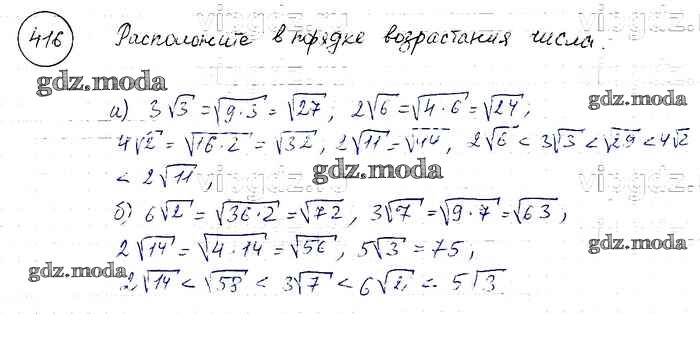 416 Расположите в порядке возрастания числа.
gdz.moda
а) 3√3 = √9·3 = √27; 2√6 = √4·6 = √24;
4√2 = √16·2 = √32, 2√11 = √44, 2√6 < 3√3 < √29 < 4√2
gdz.moda
< 2√11,
б) 6√2 = √36·2 = √72, 3√7 = √9·7 = √63,
2√14 = √4·14 = √56, 5√3 = 75,
gdz.moda
gdz.moda
2√14 < √58 < 3√7 < 6√2 < 5√3